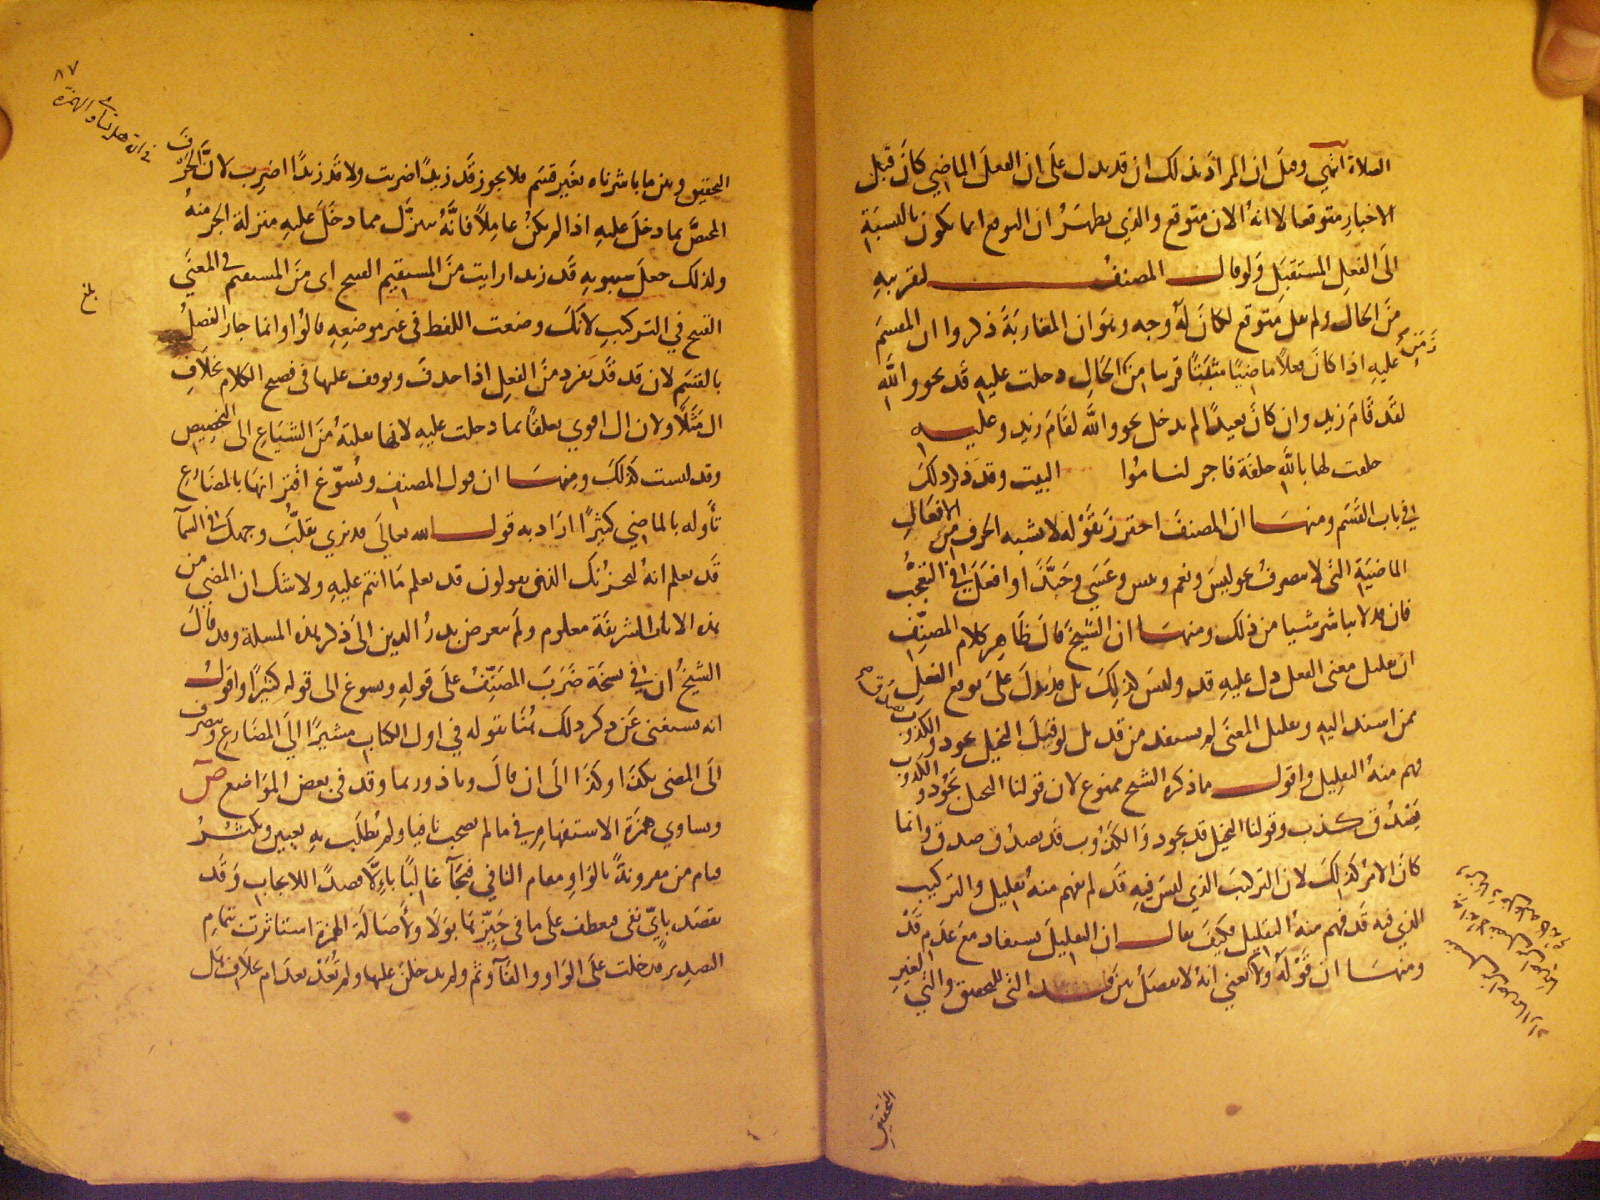 الصلاة انتهى وقيل ان المراد بذلك ان قد يدل على ان الفعل الماضي كان قبل
الاخبار متوقعا لا انه الان متوقع والذي يظهر ان التوقع انما يكون بالنسبة
الى الفعل المستقبل ولو قال المصنف لتقريبه
من الحال ولم يقل متوقع لكان له وجه وهو ان المغاربة ذكروا ان المقسم
عليه اذا كان فعلا ماضيا مثبتا قريبا من الحال دخلت عليه قد نحو والله
لقد قام زيد وان كان بعيدا لم تدخل نحو والله لقام زيد وعليه
حلفت لها بالله حلفة فاجر لناموا البيت وقد ذكر ذلك
في باب القسم ومنها ان المصنف احترز بقوله لا تشبه الحرف من الافعال
الماضية التي لا تتصرف نحو ليس ونعم وبئس وعسى وحبذا او افعل في التعجب
فان قد لا تباشر شيئا من ذلك ومنها ان الشيخ قال ظاهر كلام المصنف
ان تقليل معنى الفعل دل عليه قد وليس كذلك بل قد تدل على توقع الفعل
ممن اسند اليه وتقليل المعنى لم يستفد من قد بل لو قيل البخيل يجود والكذوب
فهم منه التقليل واقول ما ذكره الشيخ ممنوع لان قولنا البخيل يجود والكذوب
يصدق كذب وقولنا البخيل قد يجود والكذوب قد يصدق صدق وانما
كان الامر كذلك لان التركيب الذي ليس فيه قد لم يفهم منه تقليل والتركيب
الذي فيه قد فهم منه التقليل فكيف يقال ان التقليل يستفاد مع عدم قد
ومنها ان قوله ولا يعني انه لا يفصل بين قد التي للتحقيق والتي لغير
التحقيق
٨٧
في ان هل تساوي الهمزة
التحقيق وبين ما باشرناه بغير قسم فلا يجوز قد زيدا ضربت ولا قد زيدا اضرب لان الحرف
المختص بما دخل عليه اذا لم يكن عاملا فانه يتنزل مما دخل عليه منزلة الجزء منه
ولذلك جعل سيبويه قد زيدا رايت من المستقيم القبيح اي من المستقيم في المعنى
القبيح في التركيب لانك وضعت اللفظ في غير موضعه قالوا وانما جاز الفصل
بلغ
بالقسم لان قد قد تفرد من الفعل اذا حذف ويوقف عليها في فصيح الكلام بخلاف
ال مثلا ولان ال اقوى تعلقا بما دخلت عليه لانها نقلته من الشياع الى التخصيص
وقد ليست كذلك ومنها ان قول المصنف وتسوغ اقترانها بالمضارع
تأوله بالماضي كثيرا اراد به قول الله تعالى قد نرى تقلب وجهك في السماء
قد نعلم انه ليحزنك الذي يقولون قد يعلم ما انتم عليه ولا شك ان المضي من
هذه الايات الشريفة معلوم ولم يتعرض بدر الدين الى ذكر هذه المسلة وقد قال
الشيخ ان في نسخة ضرب المصنف على قوله ويسوغ الى قوله كثيرا واقول
انه يستغنى عن ذكر ذلك هنا بقوله في اول الكتاب مشيرا الى المضارع وينصرف
الى المضي بكذا وكذا الى ان قال وباذ وربما وقد في بعض المواضع ص
وتساوي همزة الاستفهام في ما لم يصحب نافيا ولم يطلب به تعيين ويكثر
قيام من مقرونة بالواو مقام النافي فيجاء غالبا بالا قصدا للايجاب وقد
يقصد باي نفي فيعطف على ما في حيزها بولا ولاصالة الهمزة استاثرت بتمام
التصدير فدخلت على الواو والفاء وثم ولم يدخلن عليها ولم تعد بعد ام بخلاف هل